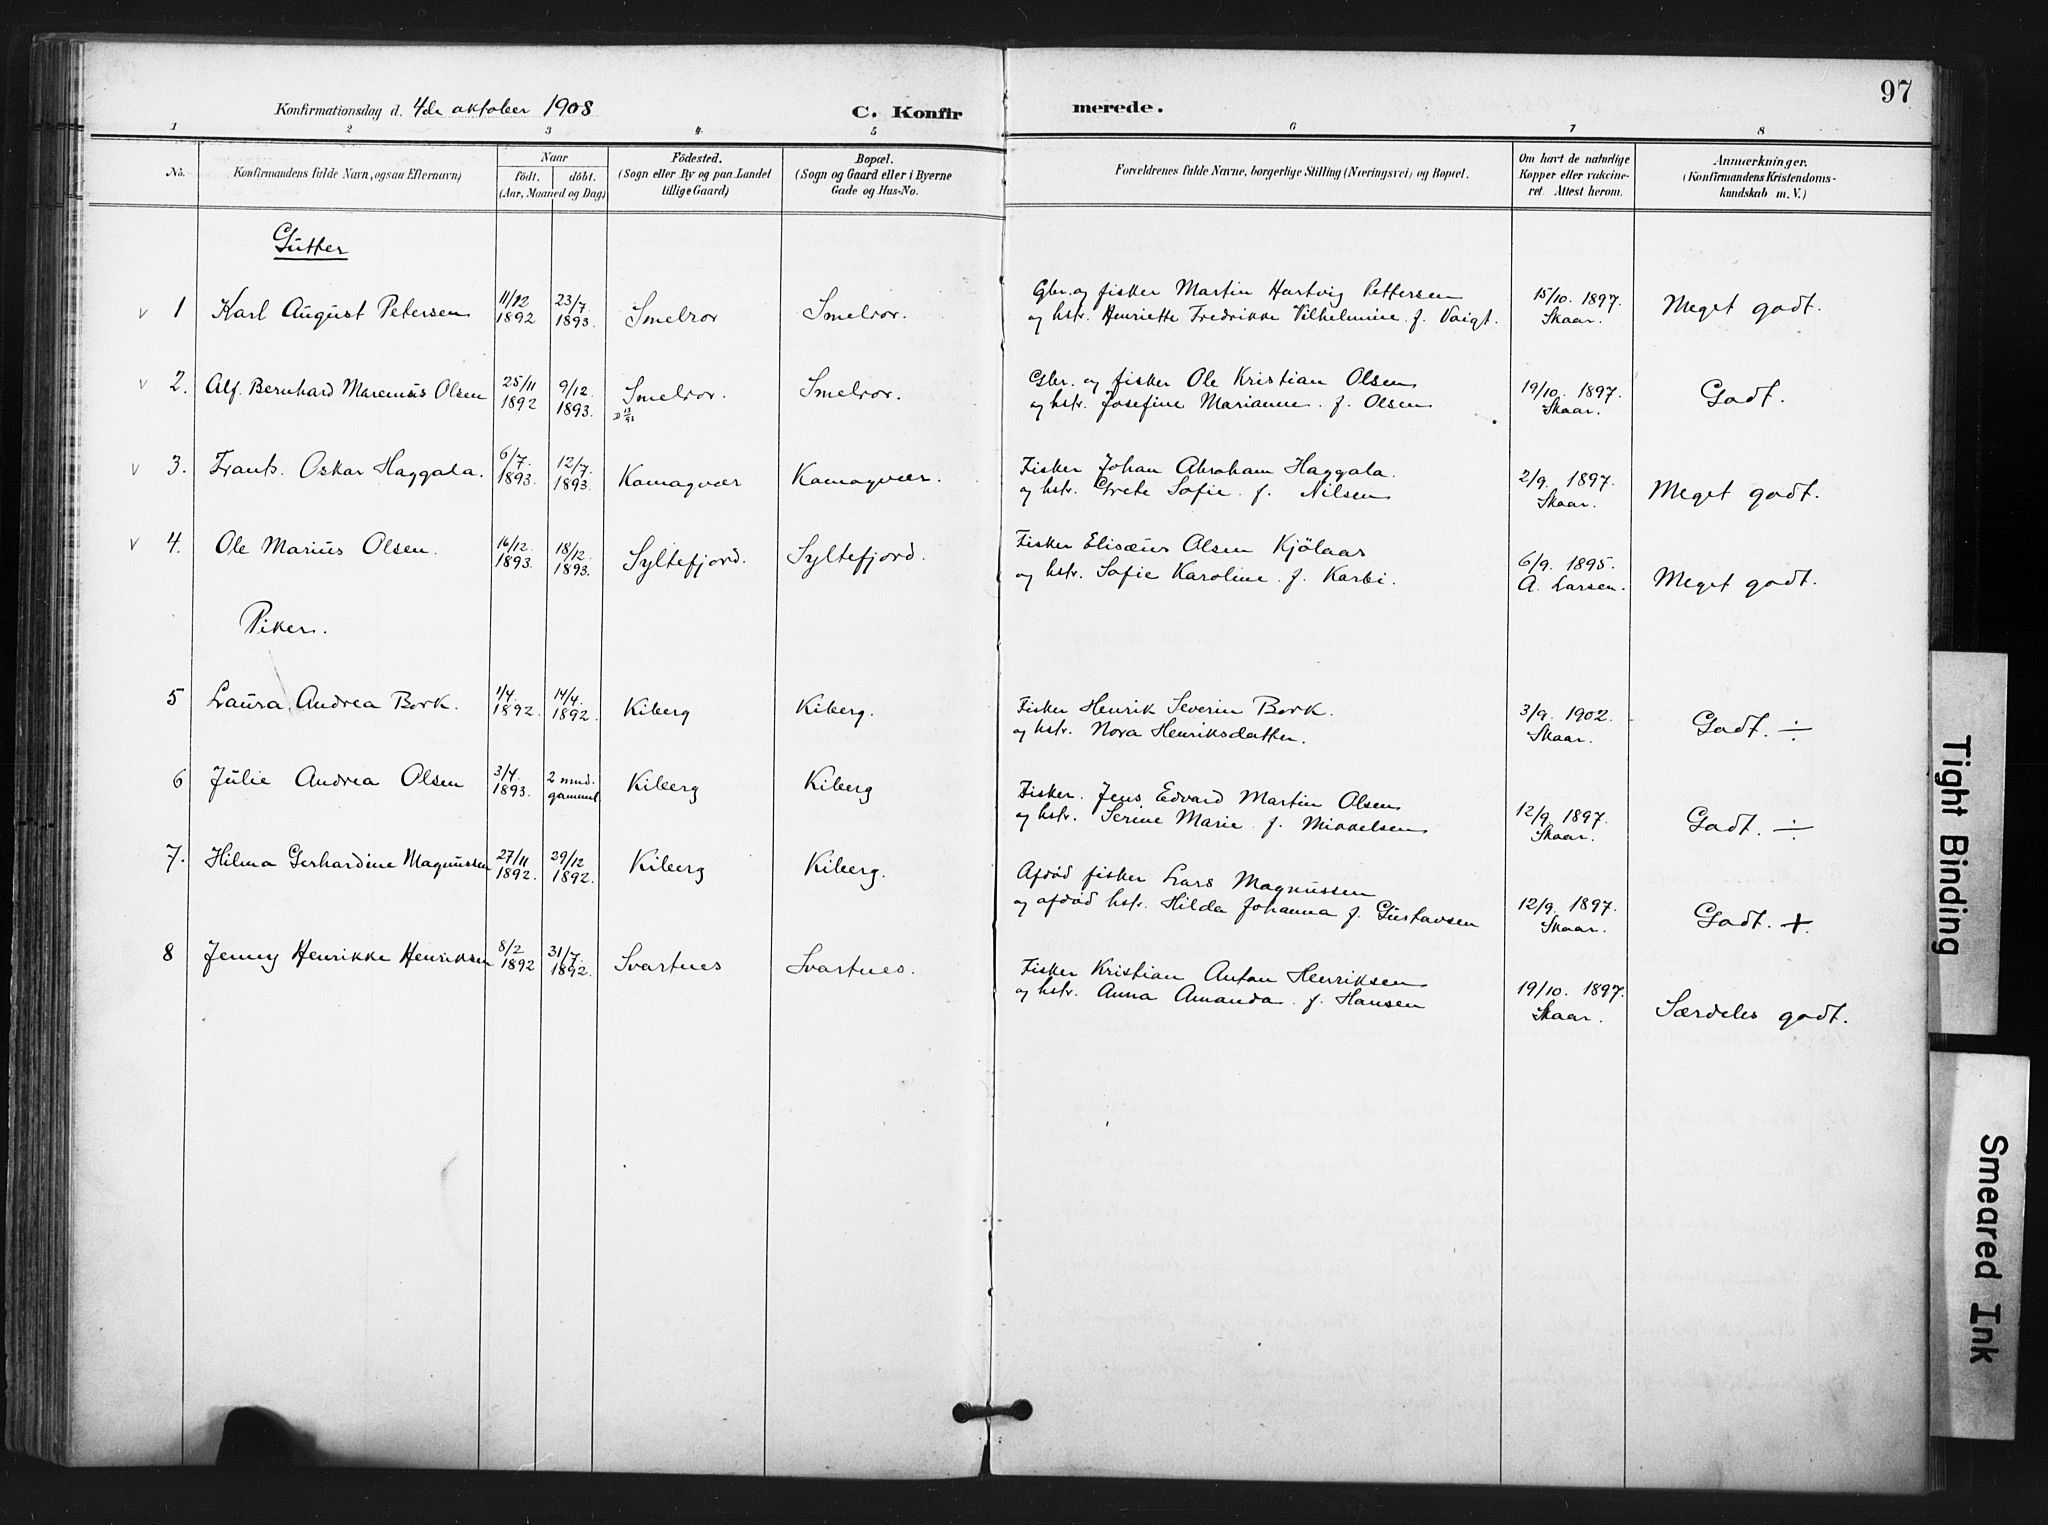 97
Konfirmationsdag d. 4de oktober 1908
C. Konfirmerede.
1 2 3 4. 5 6 7 8
No.
Konfirmandens fulde Navn, ogsaa Efternavn)
Naar
födt. döbt.
(Aar, Maaned og Dag)
Födested.
(Sogn eller By og paa Landet
tillige Gaard)
Bopæl.
(Sogn og Gaard eller i Byerne
Gade og Hus-No.
Forældrenes fulde Navne, borgerlige Stilling (Næringsvei) og Bopæl.
Om havt de naturlige
Kopper eller vakcine-
ret. Attest herom.
Anmærkninger.
(Konfirmandens Kristendoms-
kundskab m. V.)
Gutter
v 1 Karl August Petersen 11/12 1892 23/7. 1893. Smelror Smelror.
Gbr. og fisker Martin Hartvig Pettersen
og hstr. Henriette Fredrikke Vilhelmine f. Voigt.
15/10. 1897. Skaar. Meget godt.
v 2. Alf Bernhard Marenius Olsen 25/11 1892 9/12. 1893. Smelror. Smelror.
Gbr. og fisker Ole Kristian Olsen
og hstr. Josefine Marianne f. Olsen
19/10. 1897. Skaar. Godt.
v 3. Frants Oskar Haggala. 6/7. 1893. 12/7. 1893. Komagvær Komagvær.
Fisker Johan Abraham Haggala.
og hstr. Grete Sofie f. Nilsen
2/9. 1897. Skaar. Meget godt.
v 4. Ole Marius Olsen. 16/12. 1893. 18/12. 1893. Syltefjord. Syltefjord.
Fisker Elisæus Olsen Kjölaas
og hstr. Sofie Karoline f. Karbi.
6/9. 1895. A. Larsen. Meget godt.
Piker.
5 Laura Andrea Bork. 1/4. 1892. 14/4. 1892. Kiberg Kiberg.
Fisker Henrik Severin Bork.
og hstr. Nora Henriksdatter.
3/9. 1902. Skaar. Godt. ÷
6 Julie Andrea Olsen 3/4. 1893. 2 mnd. gammel Kiberg Kiberg
Fisker. Jens Edvard Martin Olsen
og hstr. Serine Marie f. Mikkelsen
12/9. 1897. Skaar. Godt. ÷
7. Hilma Gerhardine Magnussen 27/11 1892. 29/12 1892. Kiberg Kiberg.
Afdöd fisker Lars Magnussen
og afdöd hstr. Hilda Johanna f. Gustavsen
12/9. 1897. Skaar. Godt. +
8 Jenny Henrikke Henriksen 8/2 1892 31/7. 1892. Svartnes Svartnes.
Fisker Kristian Anton Henriksen
og hstr. Anna Amanda f. Hansen
19/10. 1897. Skaar. Særdeles godt.
Tight Binding
Smeared Ink